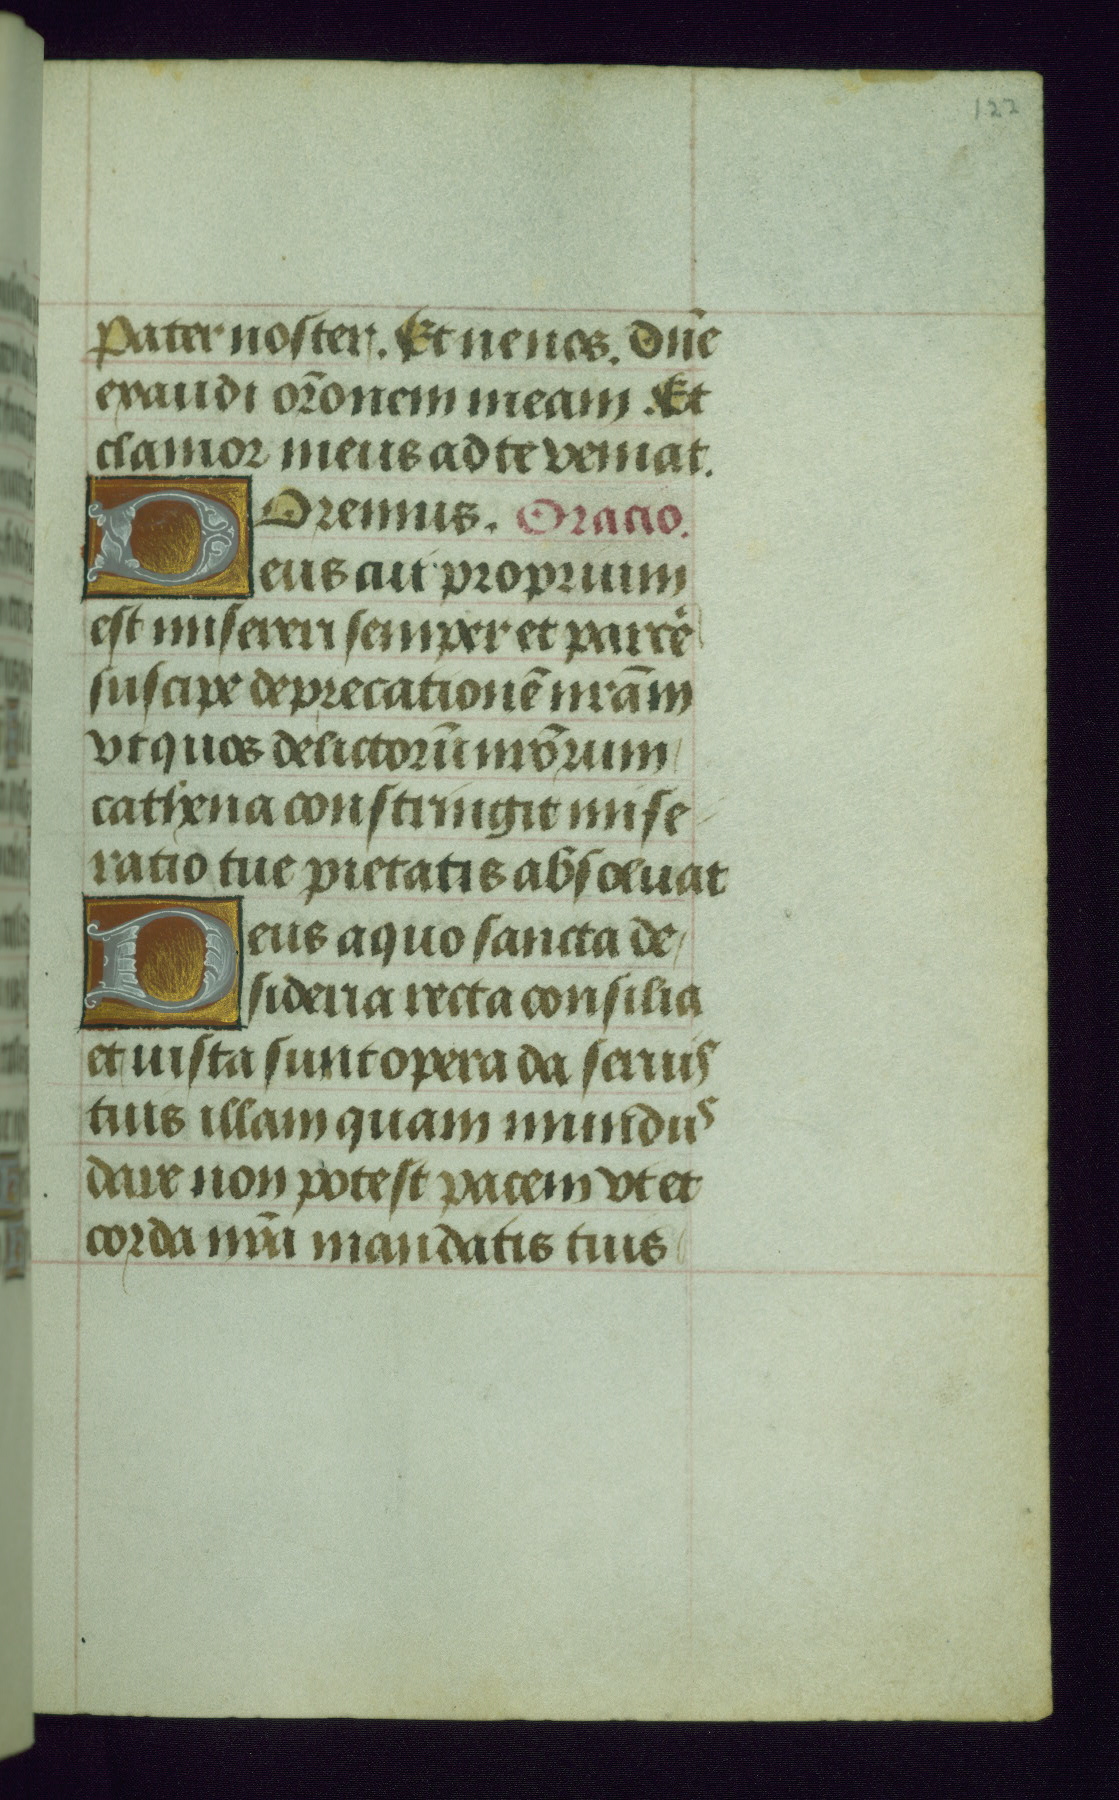 122
Pater noster. Et ne nos. Dn̄e
exaudi or̄onem meam. Et
clamor meus ad te veniat.
Oremus. Oracio.
Deus cui proprium
est misereri semper et parcē
suscipe deprecationē nr̄am
vt quos delictorū nr̄orum
cathena constringit mise
ratio tue pietatis absoluat
Deus a quo sancta de
sideria recta consilia
et iusta sunt opera da seruis
tuis illam quam mundus
dare non potest pacem vt et
corda nr̄a mandatis tuis